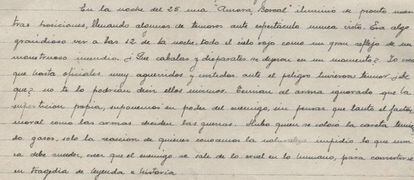 En la noche del 25 una "Aurora Boreal" iluminó de pronto nues
tras posiciones, llenando algunos de temores ante espectáculo nunca visto. Era algo
grandioso ver a las 12 de la noche, todo el cielo rojo como un gran reflejo de un
monstruoso incendio. ¿Que cabalas y disparates se dijeron en un momento? Yo creo
que hasta oficiales muy aguerridos y curtidos ante el peligro tuvieron temor ¿de
que? no te lo podrian decir ellos mismos. Temian al arma ignorada que la
superticion propia, suponemos en poder del enemigo, sin pensar que tanto el factor
moral como las armas deciden las guerras. Hubo quien se colocó la careta temien
do gases, solo la reaccion de quienes conocemos la naturaleza impidio lo que nun
ca debe suceder, creer que el enemigo se sale de lo irreal en lo humano, para convertirse
en tragedia de leyenda e historia